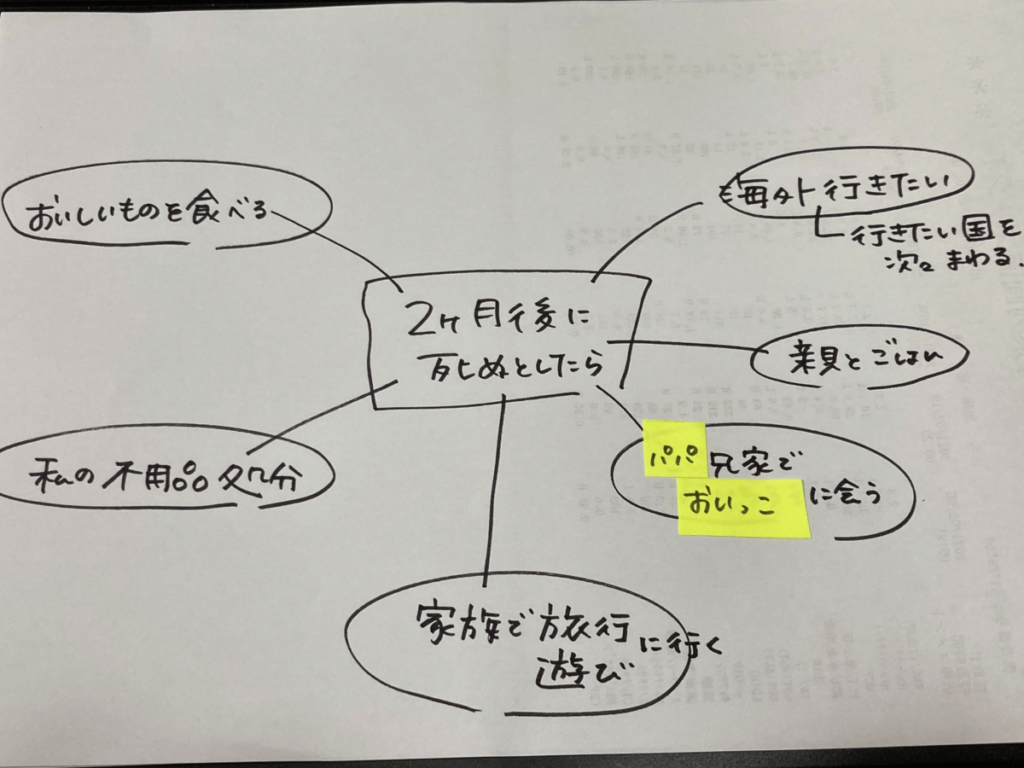 おいしいものを食べる
海外行きたい
行きたい国を
次々まわる.
2ヶ月後に
死ぬとしたら
親とごはん
私の不用品処分
パパ兄家で
おいっこに会う
家族で旅行
遊びに行く